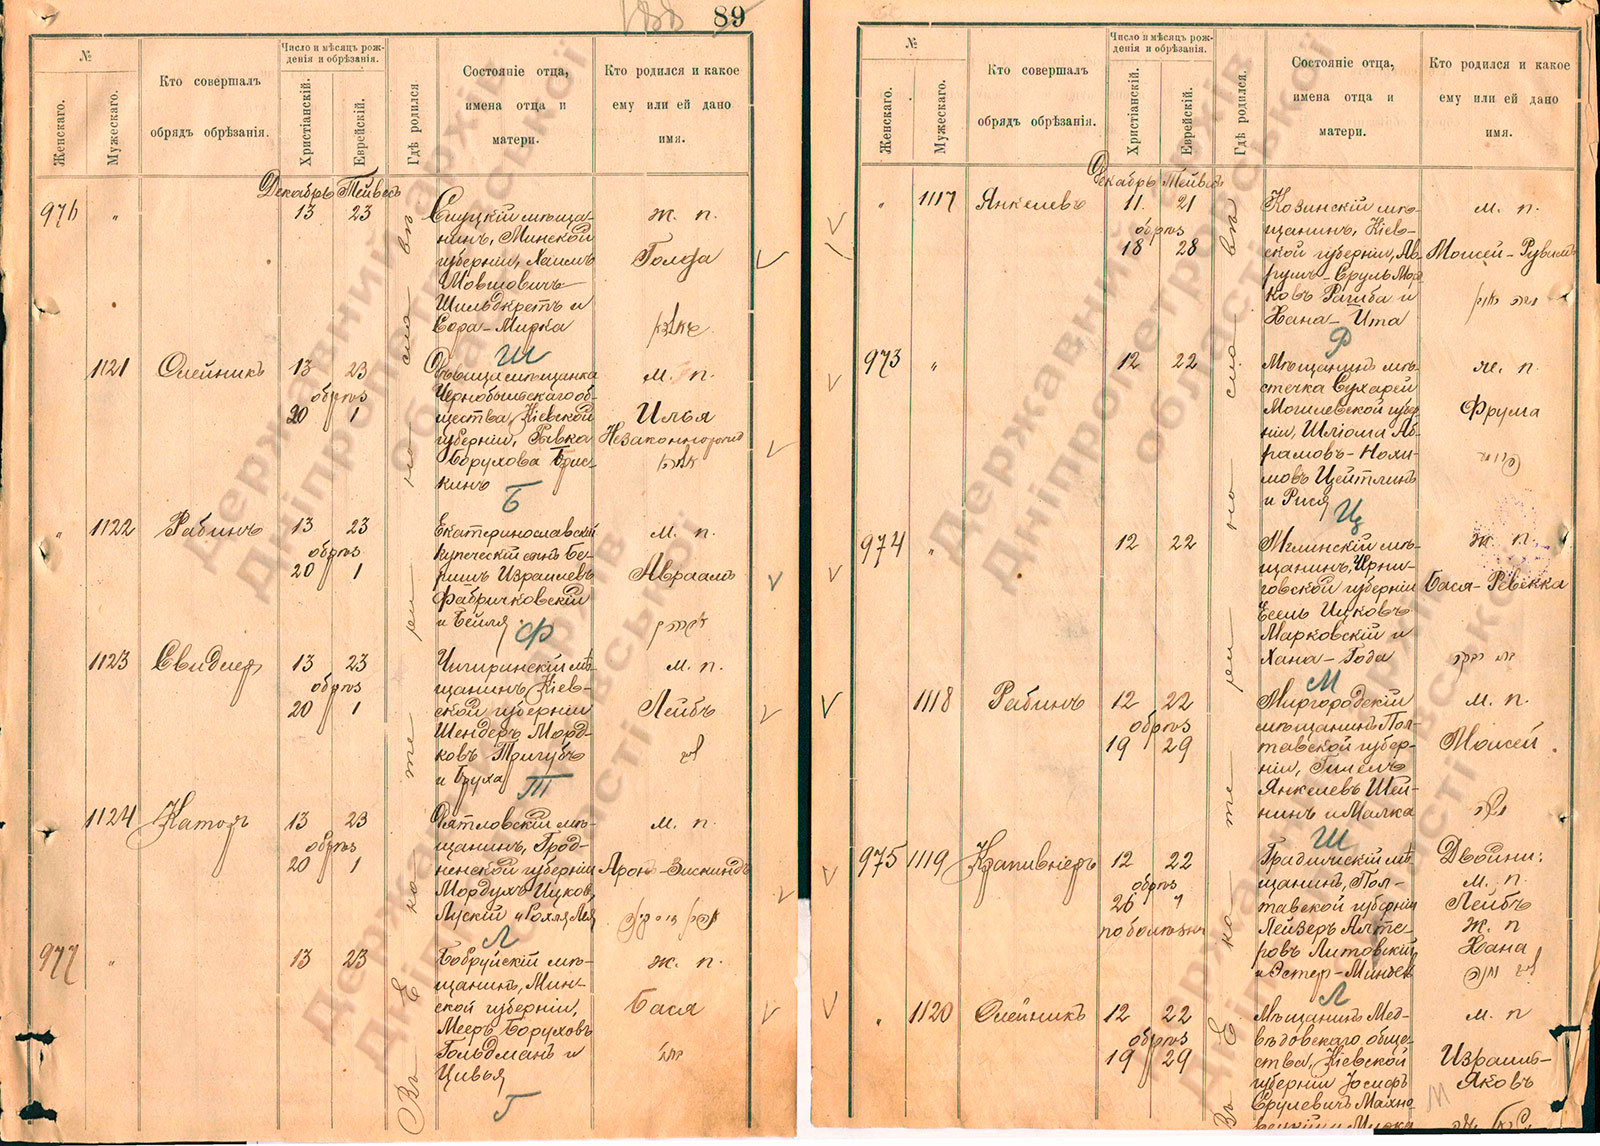 188 89
№
Женскаго.
Мужескаго.
Кто совершалъ
обрядъ обрѣзанія.
Число и мѣсяцъ рож-
денія и обрѣзанія.
Христіанскій.
Еврейскій.
Гдѣ родился
Состояніе отца,
имена отца и
матери.
Кто родился и какое
ему или ей дано
имя.
Декабрь Тейвесъ
Въ Екатеринославѣ
976 " 13 23
Слуцкій мѣща-
нинъ, Минской
губерніи, Хаимъ
Мовшовичъ
Шильдкретъ и
Сора-Мирка
Ж. п.
Голда
Ш
1121 Олейникъ 13 23
обрѣз
20 1
Дѣвица мѣщанка
Чернобыльскаго об-
щества, Кіевской
губерніи, Рывка
Борухова Брис-
кинъ
м. п.
Илья
Незаконнорожд
Б
" 1122 Рабинъ 13 23
обрѣз
20 1
Екатеринославскій
купеческій сынъ Бе-
ришъ Израилевъ
Фабричковскій
и Бейля
м. п.
Авраамъ
Ф
1123 Свидлеръ 13 23
обрѣз
20 1
Чигиринскій мѣ-
щанинъ, Кіев-
ской губерніи
Шендеръ Мордъ-
ковъ Тригубъ
и Бруха
м. п.
Лейбъ
Т
1124 Каторъ 13 23
обрѣз
20 1
Дятловскій мѣ-
щанинъ, Грод-
ненской губерніи
Мордухъ Ицков,
Лускій и Рохля Лея
м. п.
Аронъ-Зискиндъ
Л
977 " 13 23
Бобруйскій мѣ-
щанинъ, Мин-
ской губерніи,
Мееръ Боруховъ
Гольдманъ и
Цивья
Ж. п.
Бася
Г
№
Женскаго.
Мужескаго.
Кто совершалъ
обрядъ обрѣзанія.
Число и мѣсяцъ рож-
денія и обрѣзанія.
Христіанскій.
Еврейскій.
Гдѣ родился.
Состояніе отца,
имена отца и
матери.
Кто родился и какое
ему или ей дано
имя.
Декабрь Тейвесъ
Въ Екатеринославѣ
" 1117 Янкелевъ 11 21
обрѣз
18 28
Козинскій мѣ-
щанинъ, Кіев-
ской губерніи, Ав-
румъ-Сруль Мордъ-
ковъ Рагиба и
Хана-Ита
м. п.
Моисей-Рувимъ
Р
973 " 12 22
Мѣщанинъ мѣ-
стечка Сухарей
Могилевской губер-
ніи, Шліома Аб-
рамовъ-Нохи-
мовъ Цейтлинъ
и Рися
ж. п.
Фрума
Ц
974 " 12 22
Мглинскій мѣ-
щанинъ, Черни-
говской губерніи
Есель Ицковъ
Марковскій и
Хана-Года
ж п.
Бася-Ревекка
М
1118 Рабинъ 12 22
обрѣз
19 29
Миргородскій
мѣщанинъ Пол-
тавской губер-
ніи, Гимель
Янкелевъ Шей-
нинъ и Малка
м. п.
Моисей
Ш
975 1119 Крапивнеръ 12 22
обрѣз
26 "
по болѣзни
Градижскій мѣ-
щанинъ, Пол-
тавской губерніи
Лейзеръ Алте-
ровъ Литовскій
и Эстер-Миндел
Двойни:
м. п.
Лейбъ
Ж. п
Хана
Л
" 1120 Олейникъ 12 22
обрѣз
19 29
Мѣщанинъ Мед-
вѣдовскаго обще-
ства, Кіевской
губерніи Іосифъ
Срулевичъ Махно-
вецкій и Мирка
м. п
Израиль-
Яковъ
М
Державний архів
Дніпропетровської
області
Державний архів
Дніпропетровської
області